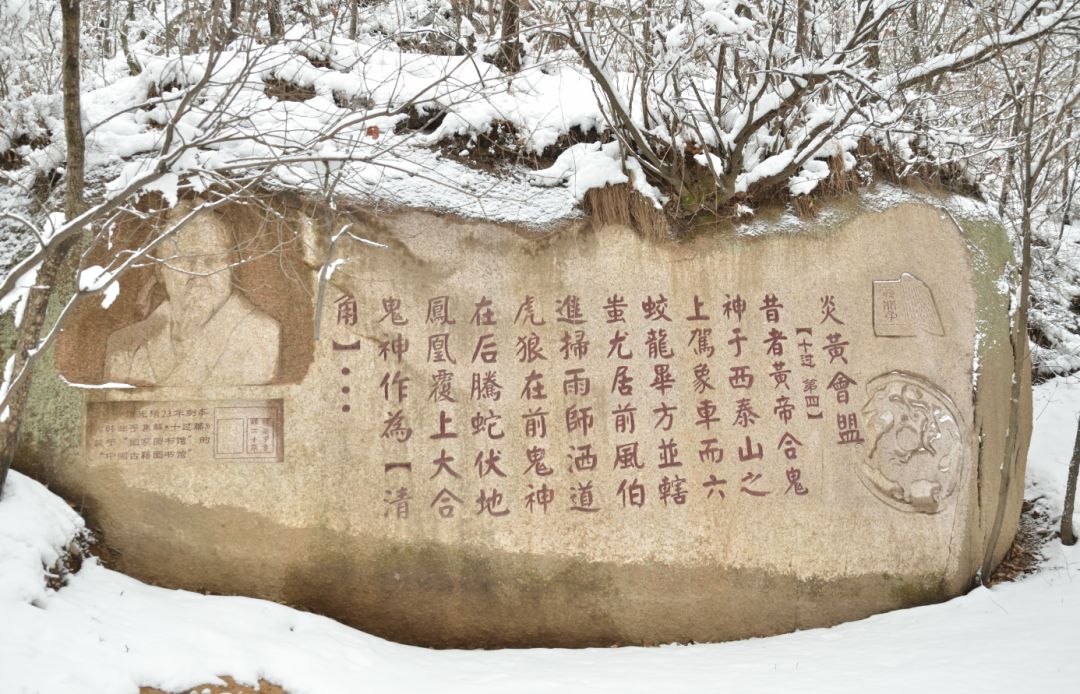 炎黃會盟
【十过 第四】
昔者黃帝合鬼
神于西泰山之
上駕象車而六
蛟龍畢方並轄
蚩尤居前風伯
進掃雨師洒道
虎狼在前鬼神
在后騰蛇伏地
鳳凰覆上大合
鬼神作為【清
角】•••
23年刻本
《韩非子集解•十过篇》
于“国家图书馆”的
“中国古籍图书馆”